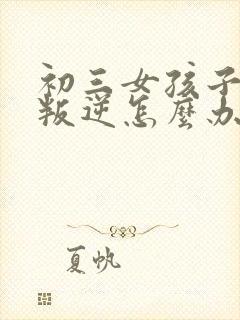 初三女孩子
叛逆怎麼办
夏帆